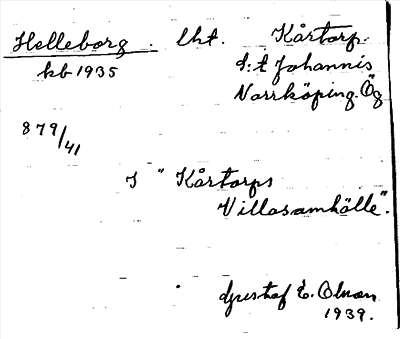 Helleborg. lht. Kårtorp.
kb 1935 S:t Johannis
Norrköping. Ög
879/41
I "Kårtorps
Villasamhälle".
Gustaf E. Olson
1939.